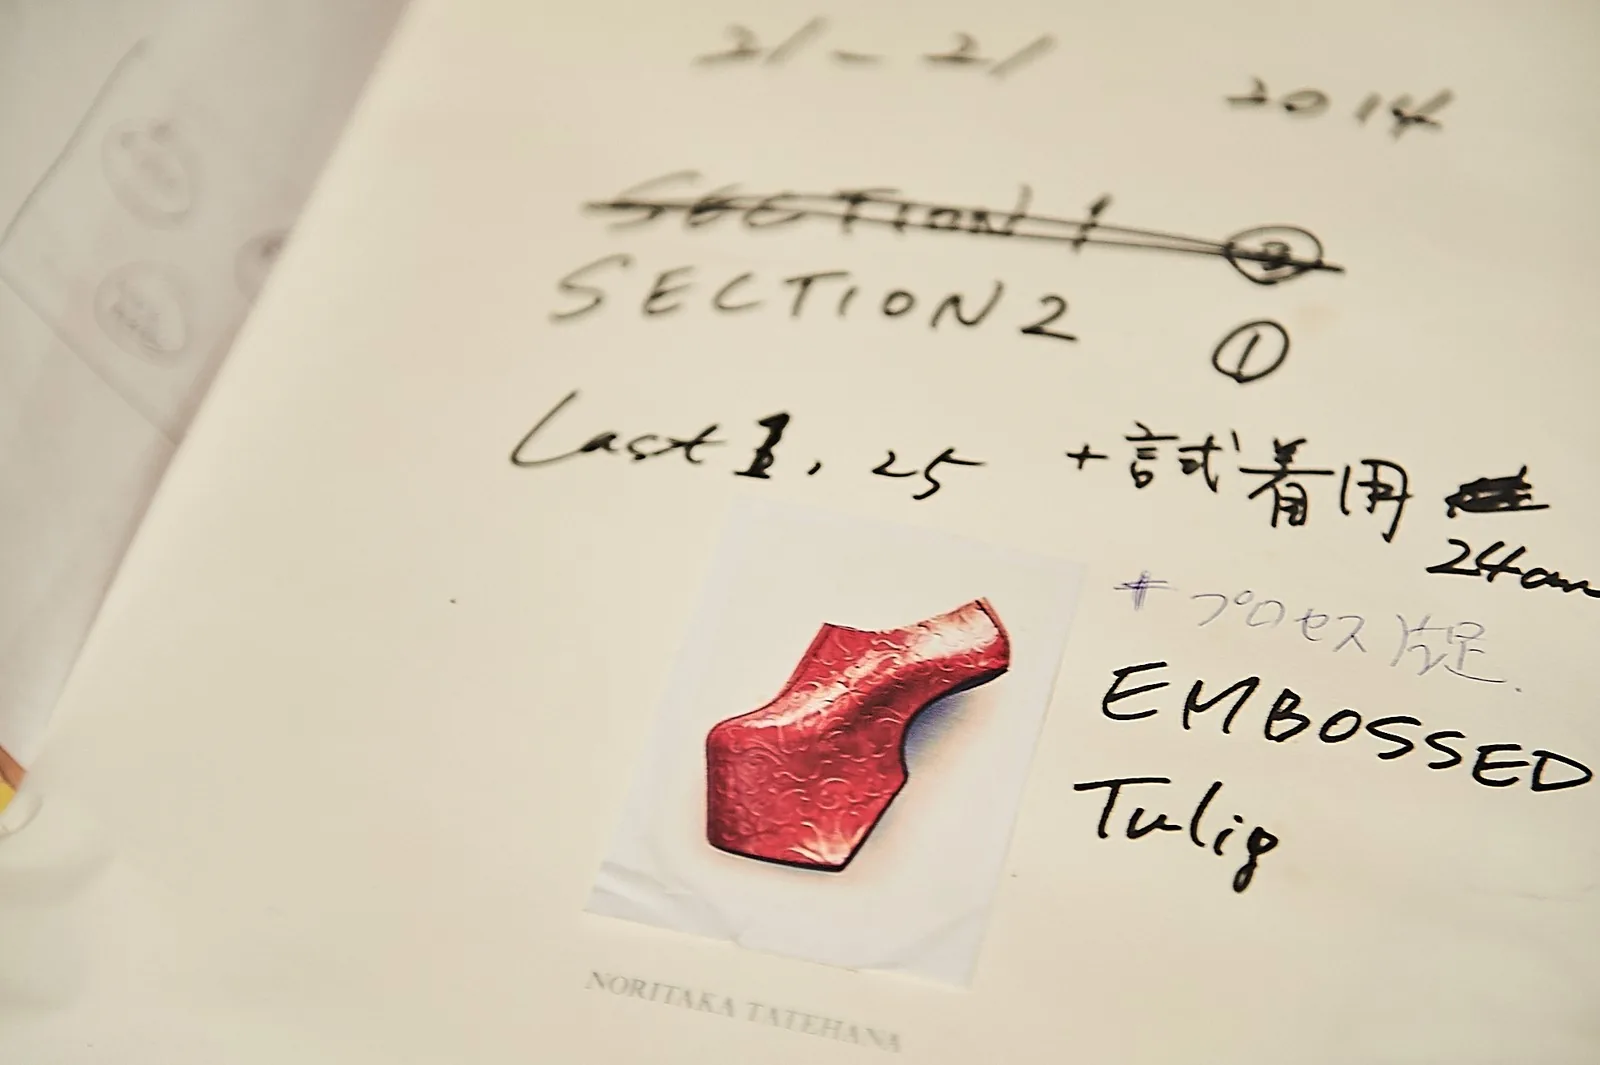 21-21 2014
SECTION 1 ③
SECTION 2 ①
Last 1, 25 +試着用
24cm
+プロセス
EMBOSSED
Tulip
NORITAKA TATEHANA